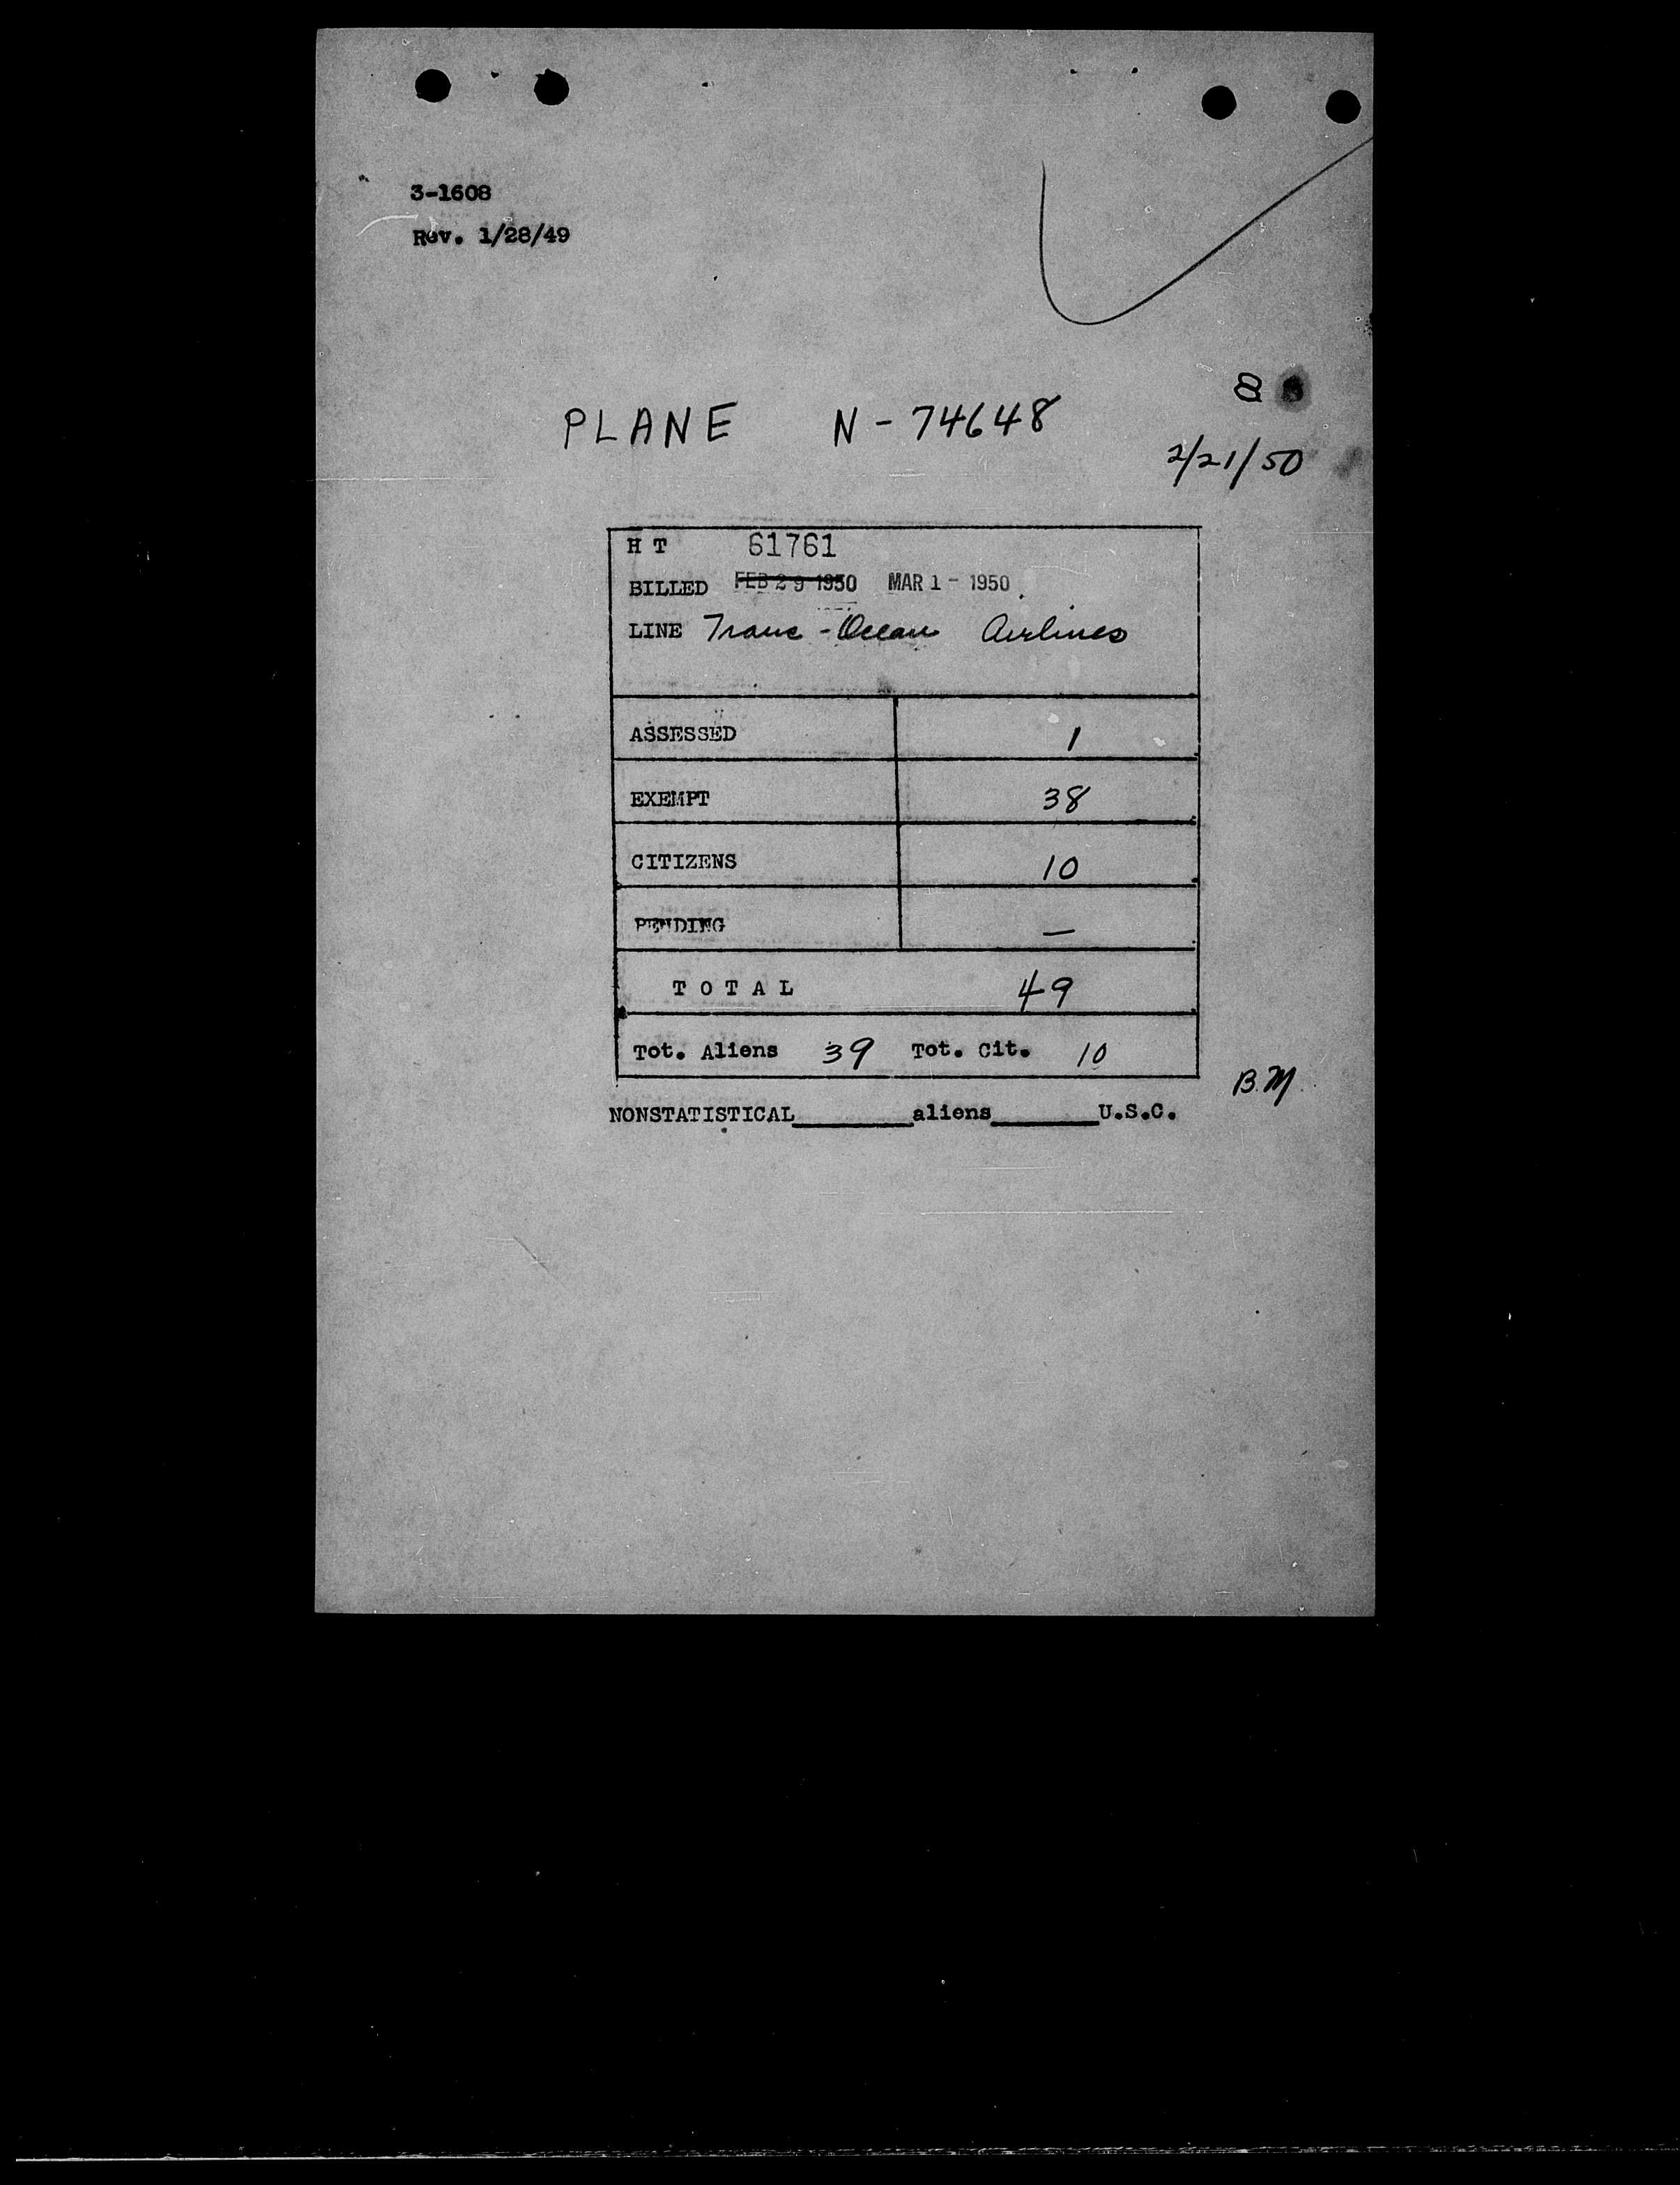 3-1608
Rev. 1/28/49
8
PLANE N-74648
2/21/50
H T 61761
BILLED FEB 29 1950 MAR 1 - 1950
LINE Trans-Ocean Airlines
ASSESSED 1
EXEMPT 38
CITIZENS 10
PENDING —
T O T A L 49
Tot. Aliens 39 Tot. Cit. 10
B.M.
NONSTATISTICAL______aliens______U.S.C.